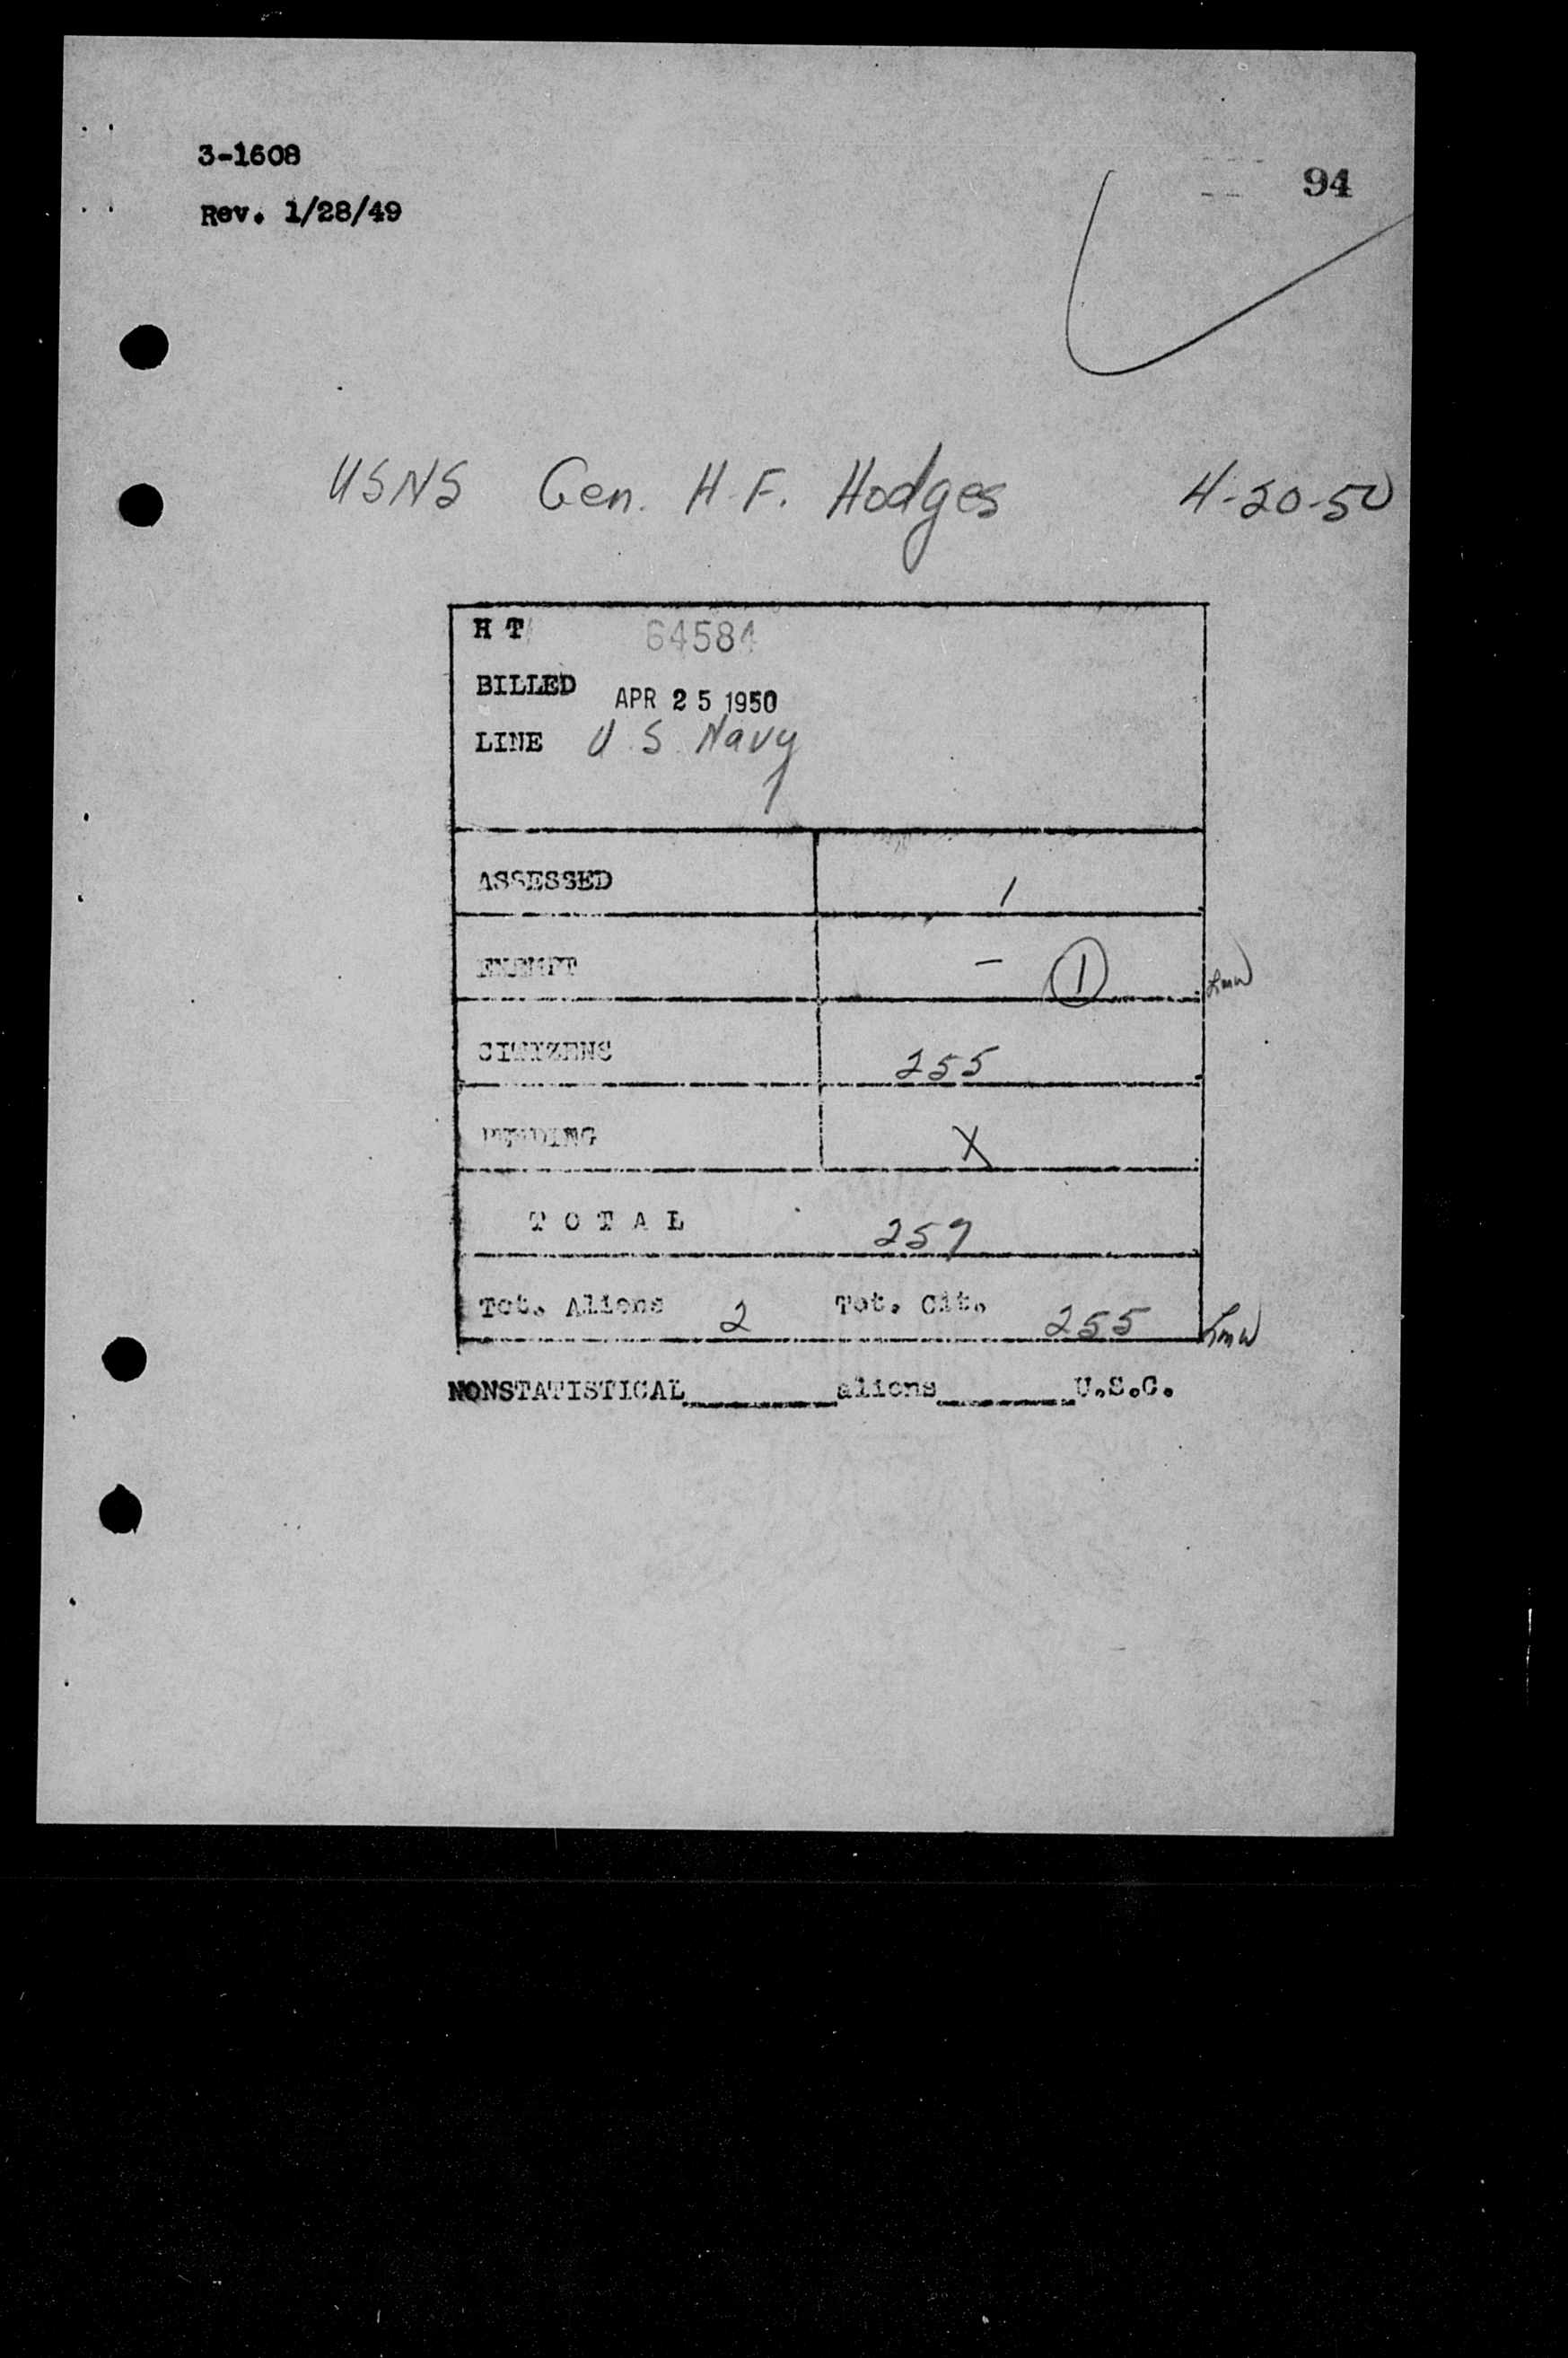 3-1608
94
Rev. 1/28/49
USNS Gen. H.F. Hodges 4-20-50
H T 64584
BILLED APR 25 1950
LINE U.S. Navy
ASSESSED 1
EXEMPT - 1 Lmw
CITIZENS 255
PENDING X
TOTAL 257
Tot. Aliens 2 Tot. Cit. 255 Lmw
NONSTATISTICAL aliens U.S.C.